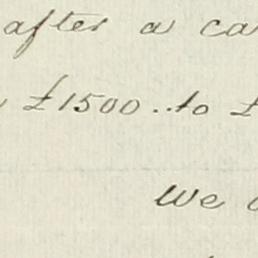 after a ca
£1500..to £
We